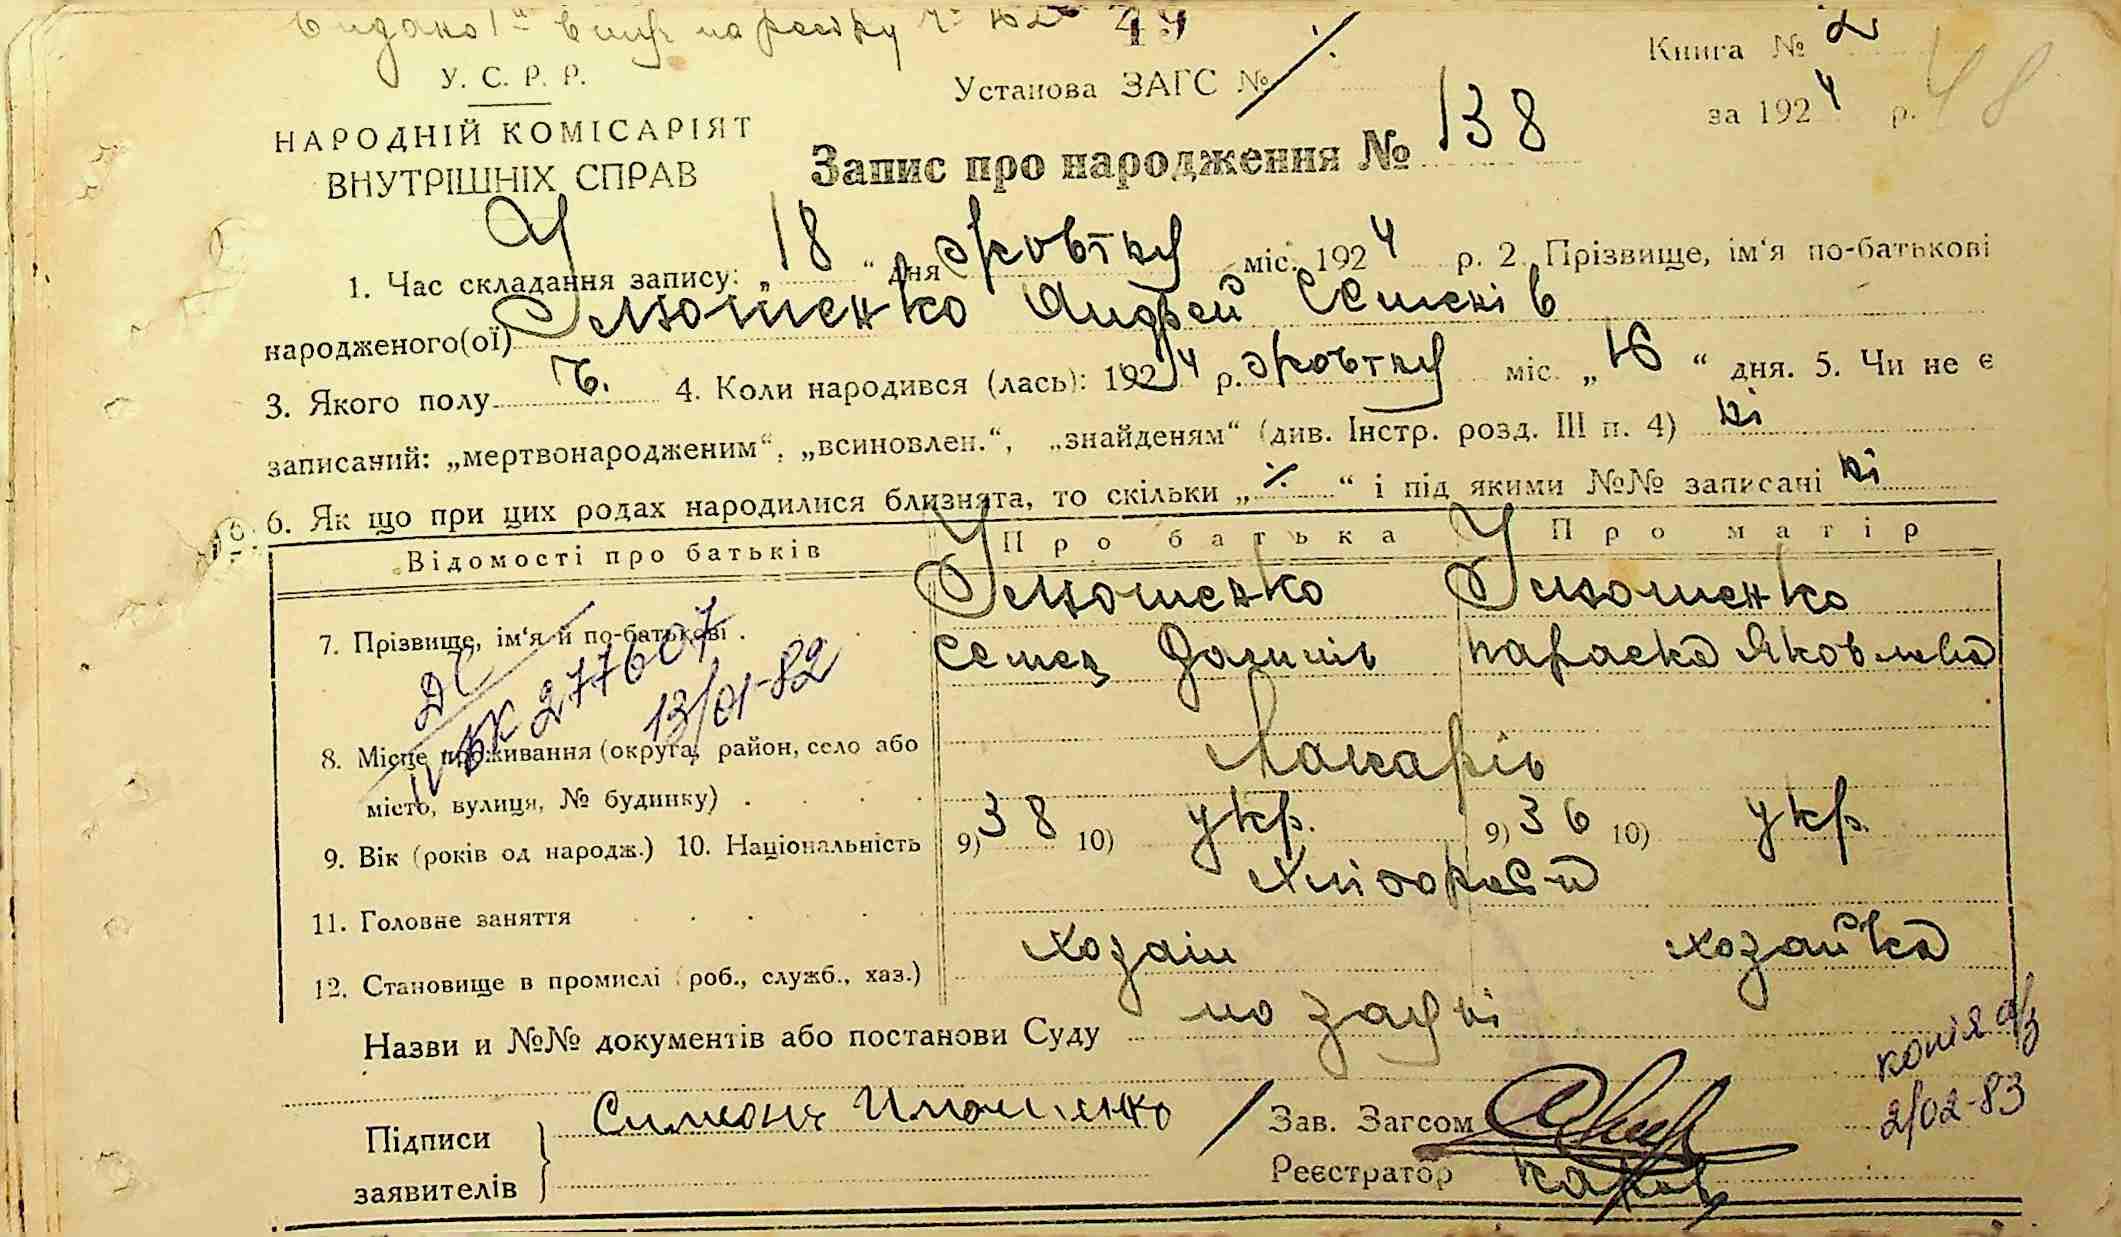 У. С. Р. Р.
НАРОДНІЙ КОМІСАРІЯТ
ВНУТРІШНІХ СПРАВ
Установа ЗАГС №
Книга № 2
за 1924 р. 48
Запис про народження № 138
1. Час складання запису: „18“ дня жовтня міс. 1924 р. 2. Прізвище, ім‘я по-батькові
народженого(ої) Андрей Семенів
3. Якого полу ч. 4. Коли народився (лась): 1924 р. жовтня міс. „16“ дня. 5. Чи не є
записаний: „мертвонародженим“, „всиновлен.“, „знайденям“ (див. Інстр. розд. III п. 4) ні
6. Як що при цих родах народилися близнята, то скільки „“ і під якими №№ записані ні
Відомості про батьків Про батька Про матір
7. Прізвище, ім‘я й по-батькові
Семен Данилів Параска Яковлева
277607
13/01-82
8. Місце проживання (округа, район, село або
місто, вулиця, № будинку) Макарів
9. Вік (років од народж.) 10. Національність 9) 38 10) укр. 9) 36 10) укр.
11. Головне заняття Хліборобст
12. Становище в промислі (роб., служб., хаз.) хозаін хозайка
Назви и №№ документів або постанови Суду по заяві
копія а/з
2/02-83
Підписи
заявителів
Зав. Загсом
Реєстратор